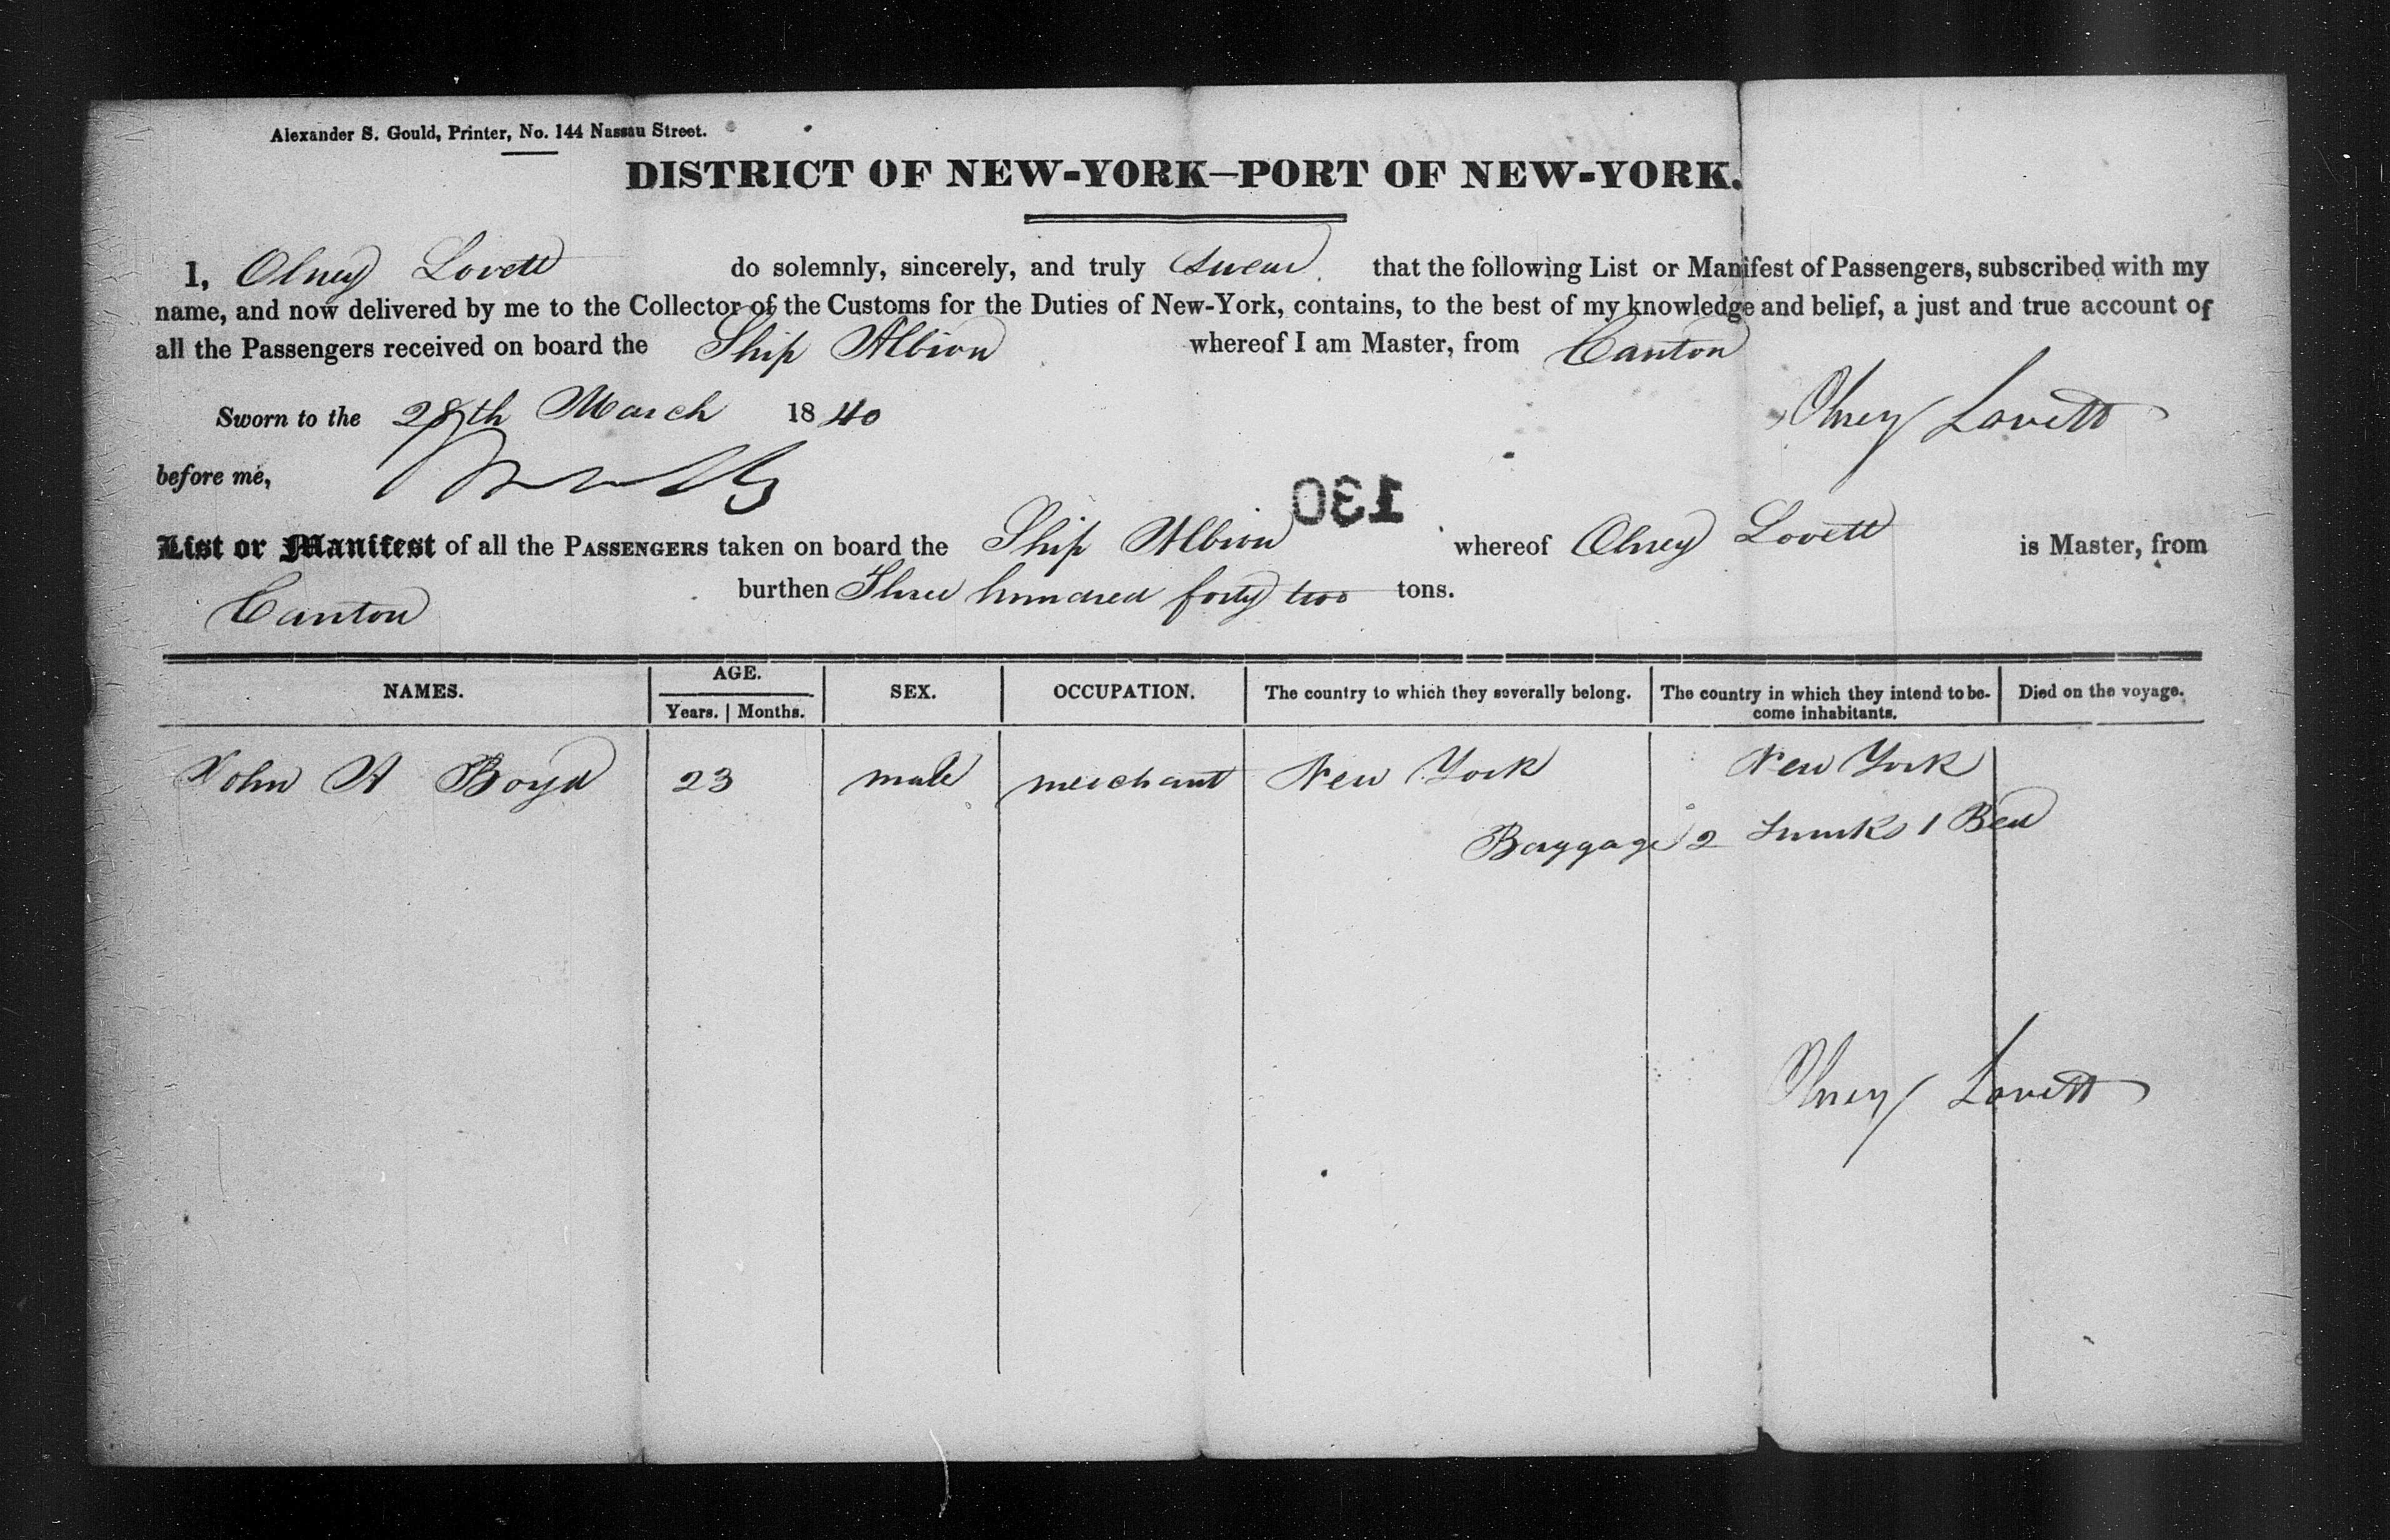 Alexander S. Gould, Printer, No. 144 Nassau Street.
DISTRICT OF NEW-YORK—PORT OF NEW-YORK.
I, Olney Lovett do solemnly, sincerely, and truly swear that the following List or Manifest of Passengers, subscribed with my
name, and now delivered by me to the Collector of the Customs for the Duties of New-York, contains, to the best of my knowledge and belief, a just and true account of
all the Passengers received on board the Ship Albion whereof I am Master, from Canton
Sworn to the 28th March 1840 Olney Lovett
before me,
130
List or Manifest of all the PASSENGERS taken on board the Ship Albion whereof Olney Lovett is Master, from
Canton burthen Three hundred forty two tons.
NAMES. AGE. SEX. OCCUPATION. The country to which they severally belong. The country in which they intend to be- Died on the voyage.
Years. Months. come inhabitants.
John A Boyd 23 male merchant New York New York
Baggage 2 Trunks 1 Bed
Olney Lovett